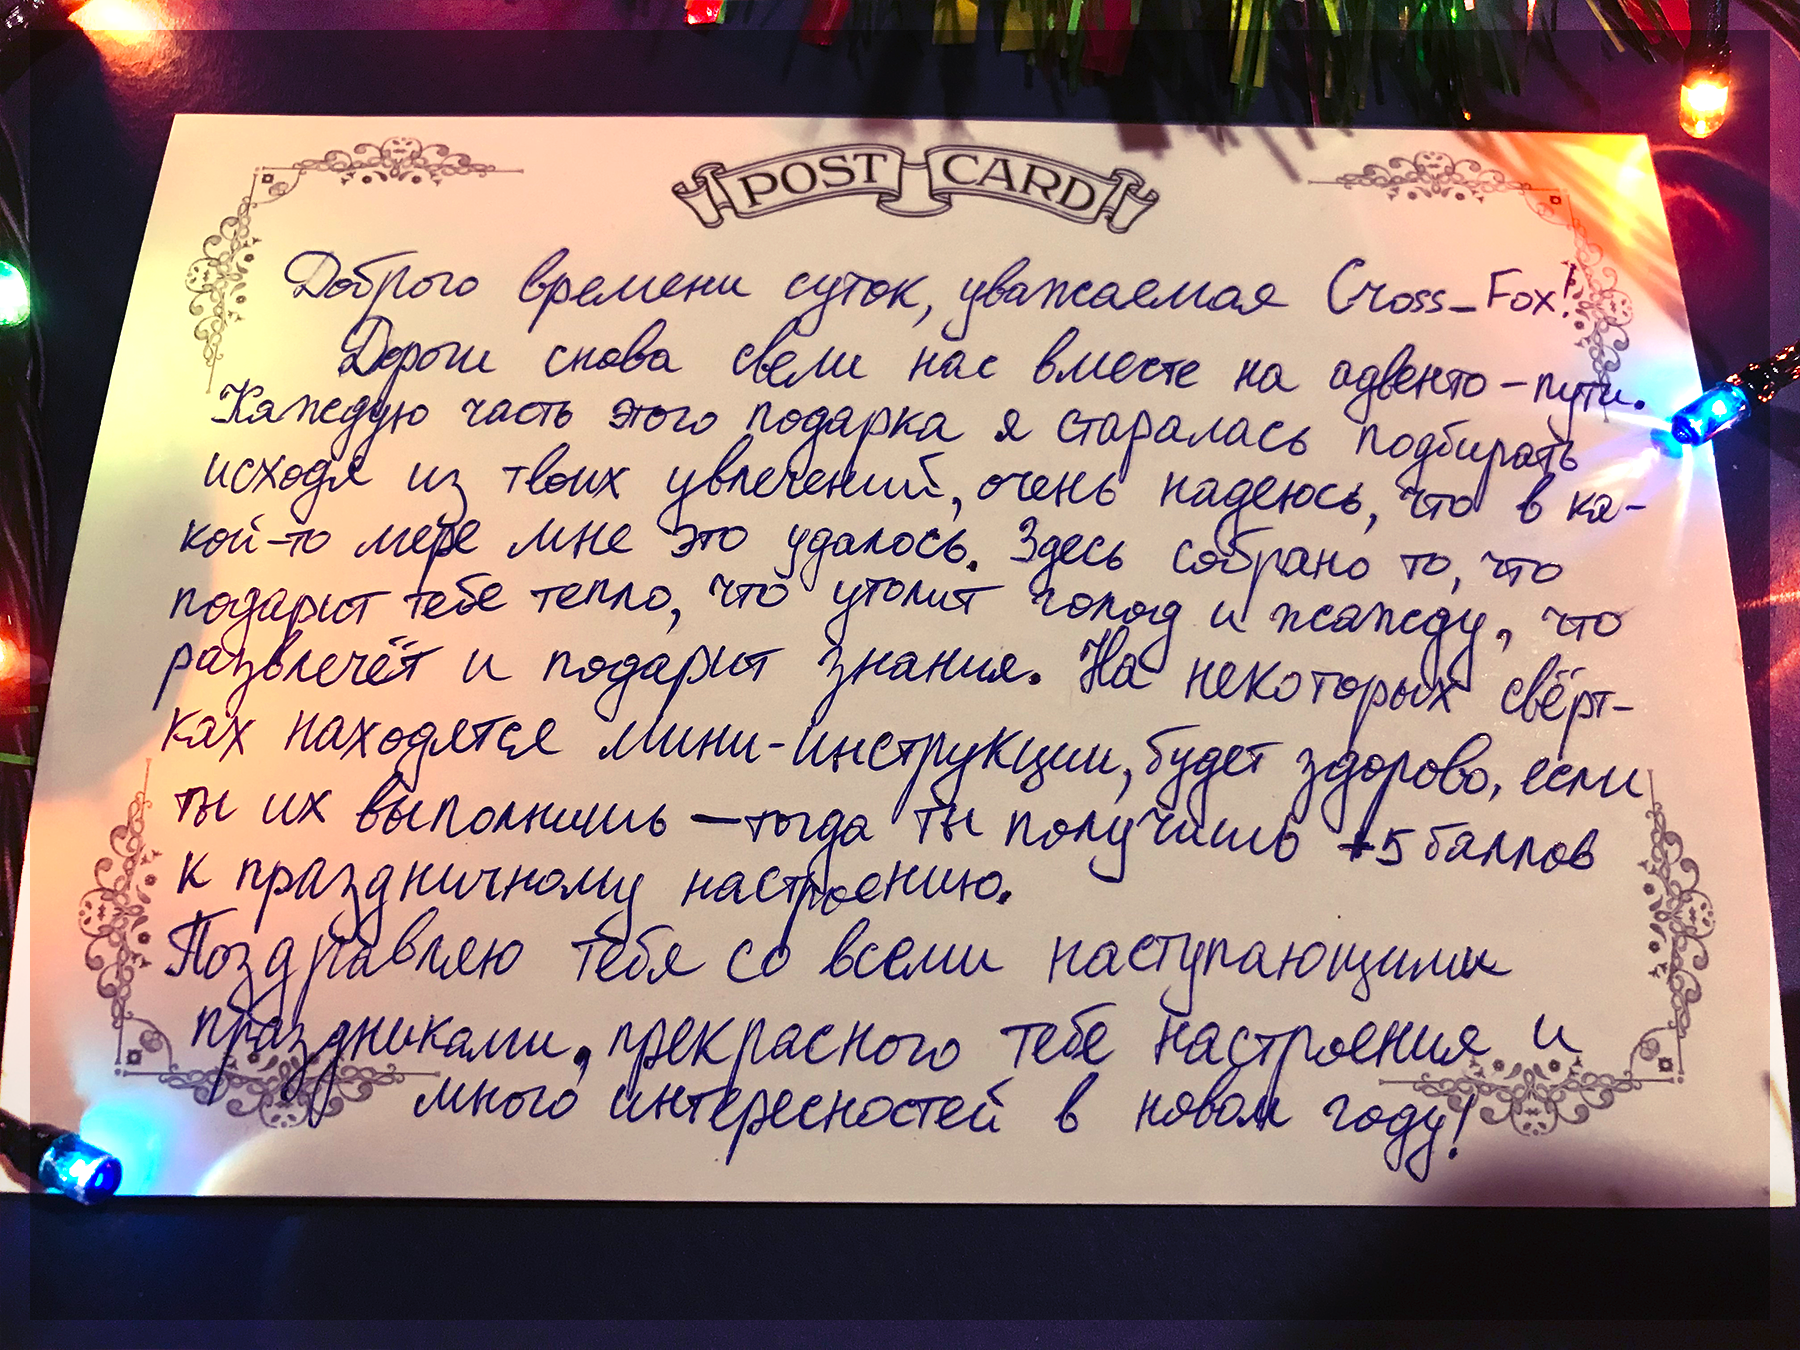 POST CARD
Доброго времени суток, уважаемая Cross_Fox!
Дороги снова свели нас вместе на адвенто-пути.
Каждую часть этого подарка я старалась подбирать
исходя из твоих увлечений, очень надеюсь, что в ка-
кой-то мере мне это удалось. Здесь собрано то, что
подарит тебе тепло, что утолит голод и жажду, что
развлечёт и подарит знания. На некоторых свёрт-
ках находятся мини-инструкции, будет здорово, если
ты их выполнишь – тогда ты получишь +5 баллов
к праздничному настроению.
Поздравляю тебя со всеми наступающими
праздниками, прекрасного тебе настроения и
много интересностей в новом году!